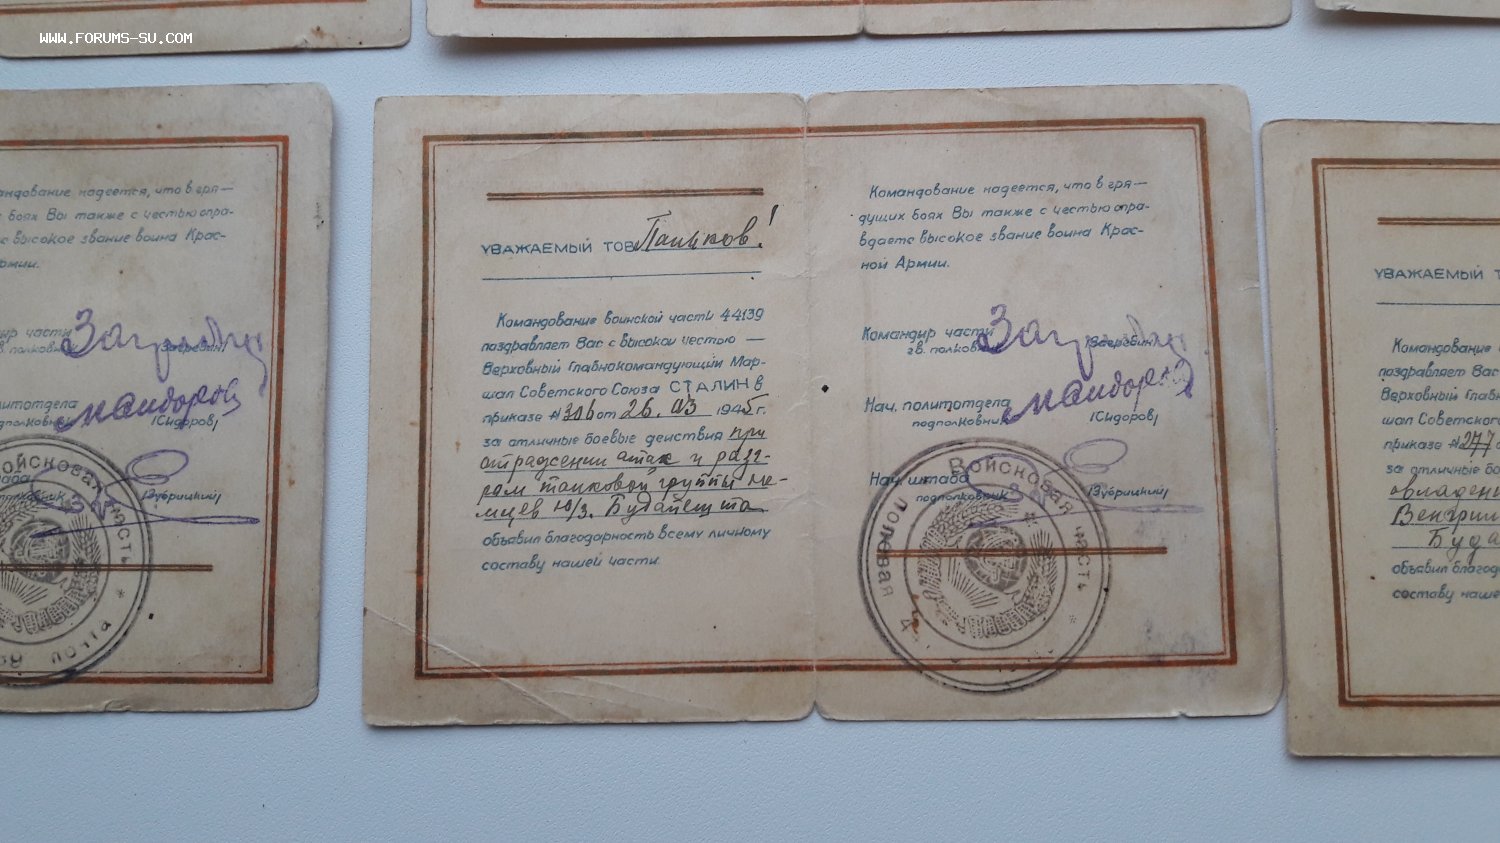 WWW.FORUMS-SU.COM
андование надеется, что в гря—
боях Вы также с честью опра-
высокое звание воина Крас-
Армии.
части
полков
литотдела
(Сидоров)
(Зубрицкий)
УВАЖАЕМЫЙ ТОВ Паньков!
Командование воинской части 44139
поздравляет Вас с высокой честью —
Верховный Главнокомандующий Мар-
шал Советского Союза СТАЛИН в
приказе № 306 от 26.03 1945 г.
за отличные боевые действия при
отражении атак и разг-
ром танковой группы не-
мцев ю/з. Будапешта
объявил благодарность всему личному
составу нашей части.
Командование надеется, что в гря—
дущих боях Вы также с честью опра-
вдаете высокое звание воина Крас-
ной Армии.
Командир части
гв. полков
Нач. политотдела
подполковник (Сидоров)
Нач. штаба
подполковник (Зубрицкий)
Войсковая часть * полевая
УВАЖАЕМЫЙ
Командование
поздравляет Вас
Верховный
шал Советского
приказе № 277
за отличные
овладени
Венгрии
Буда
объявил
составу наше